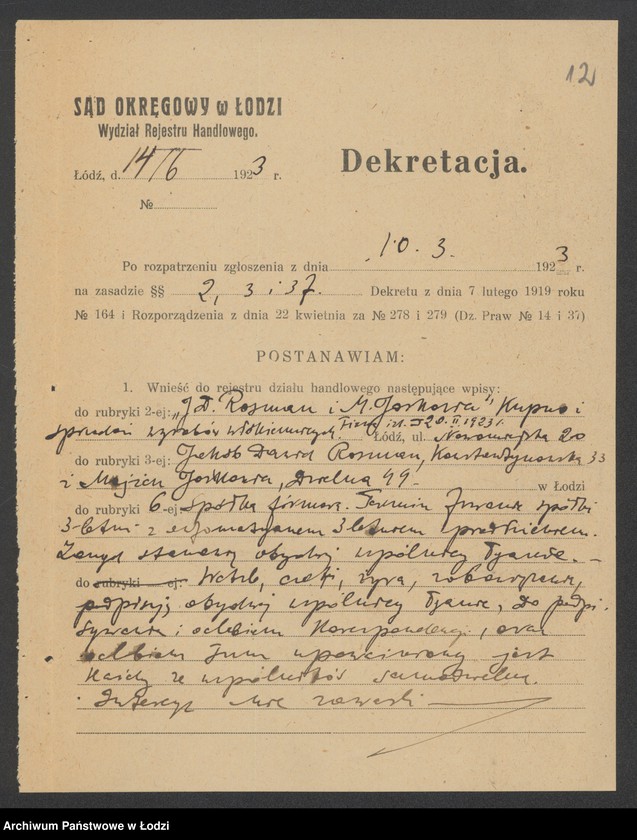 12
SĄD OKRĘGOWY w ŁODZI
Wydział Rejestru Handlowego.
Łódź, d. 14/6 1923 r.
Dekretacja.
№
Po rozpatrzeniu zgłoszenia z dnia 10. 3. 1923 r.
na zasadzie §§ 2, 3 i 37. Dekretu z dnia 7 lutego 1919 roku
№ 164 i Rozporządzenia z dnia 22 kwietnia za № 278 i 279 (Dz. Praw № 14 i 37)
POSTANAWIAM:
1. Wnieść do rejestru działu handlowego następujące wpisy:
do rubryki 2-ej: „J. D. Rosman i M. Joskowicz" Kupno i
sprzedaż wyrobów włókienniczych. Firma ist. 20. II 1923 r. Łódź, ul. 20
do rubryki 3-ej: Jakob Dawid Rosman, Konstantynowska 33
i Joskowicz, Dzielna 49. w Łodzi
do rubryki 6-ej spółka firmowa. Termin trwania spółki
3 letni z automatycznem 3 letniem przedłużeniem.
Zarząd stanowią obydwaj wspólnicy łącznie. –
do rubryki ej: Weksle, czeki, żyra, zobowiązania,
podpisują obydwaj wspólnicy łącznie, do podpi-
sywania i odbioru korespondencji, oraz
odbioru upoważniony jest
każdy ze wspólników samodzielnie.
Intercyz nie zawarli
Archiwum Państwowe w Łodzi